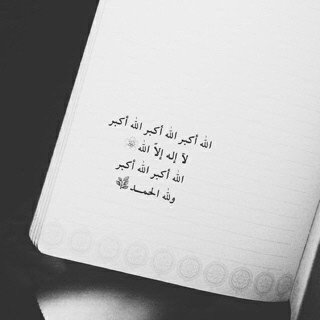 الله أكبر الله أكبر الله أكبر
لآ إله إلآ الله
الله أكبر الله أكبر
ولله الحمـــد